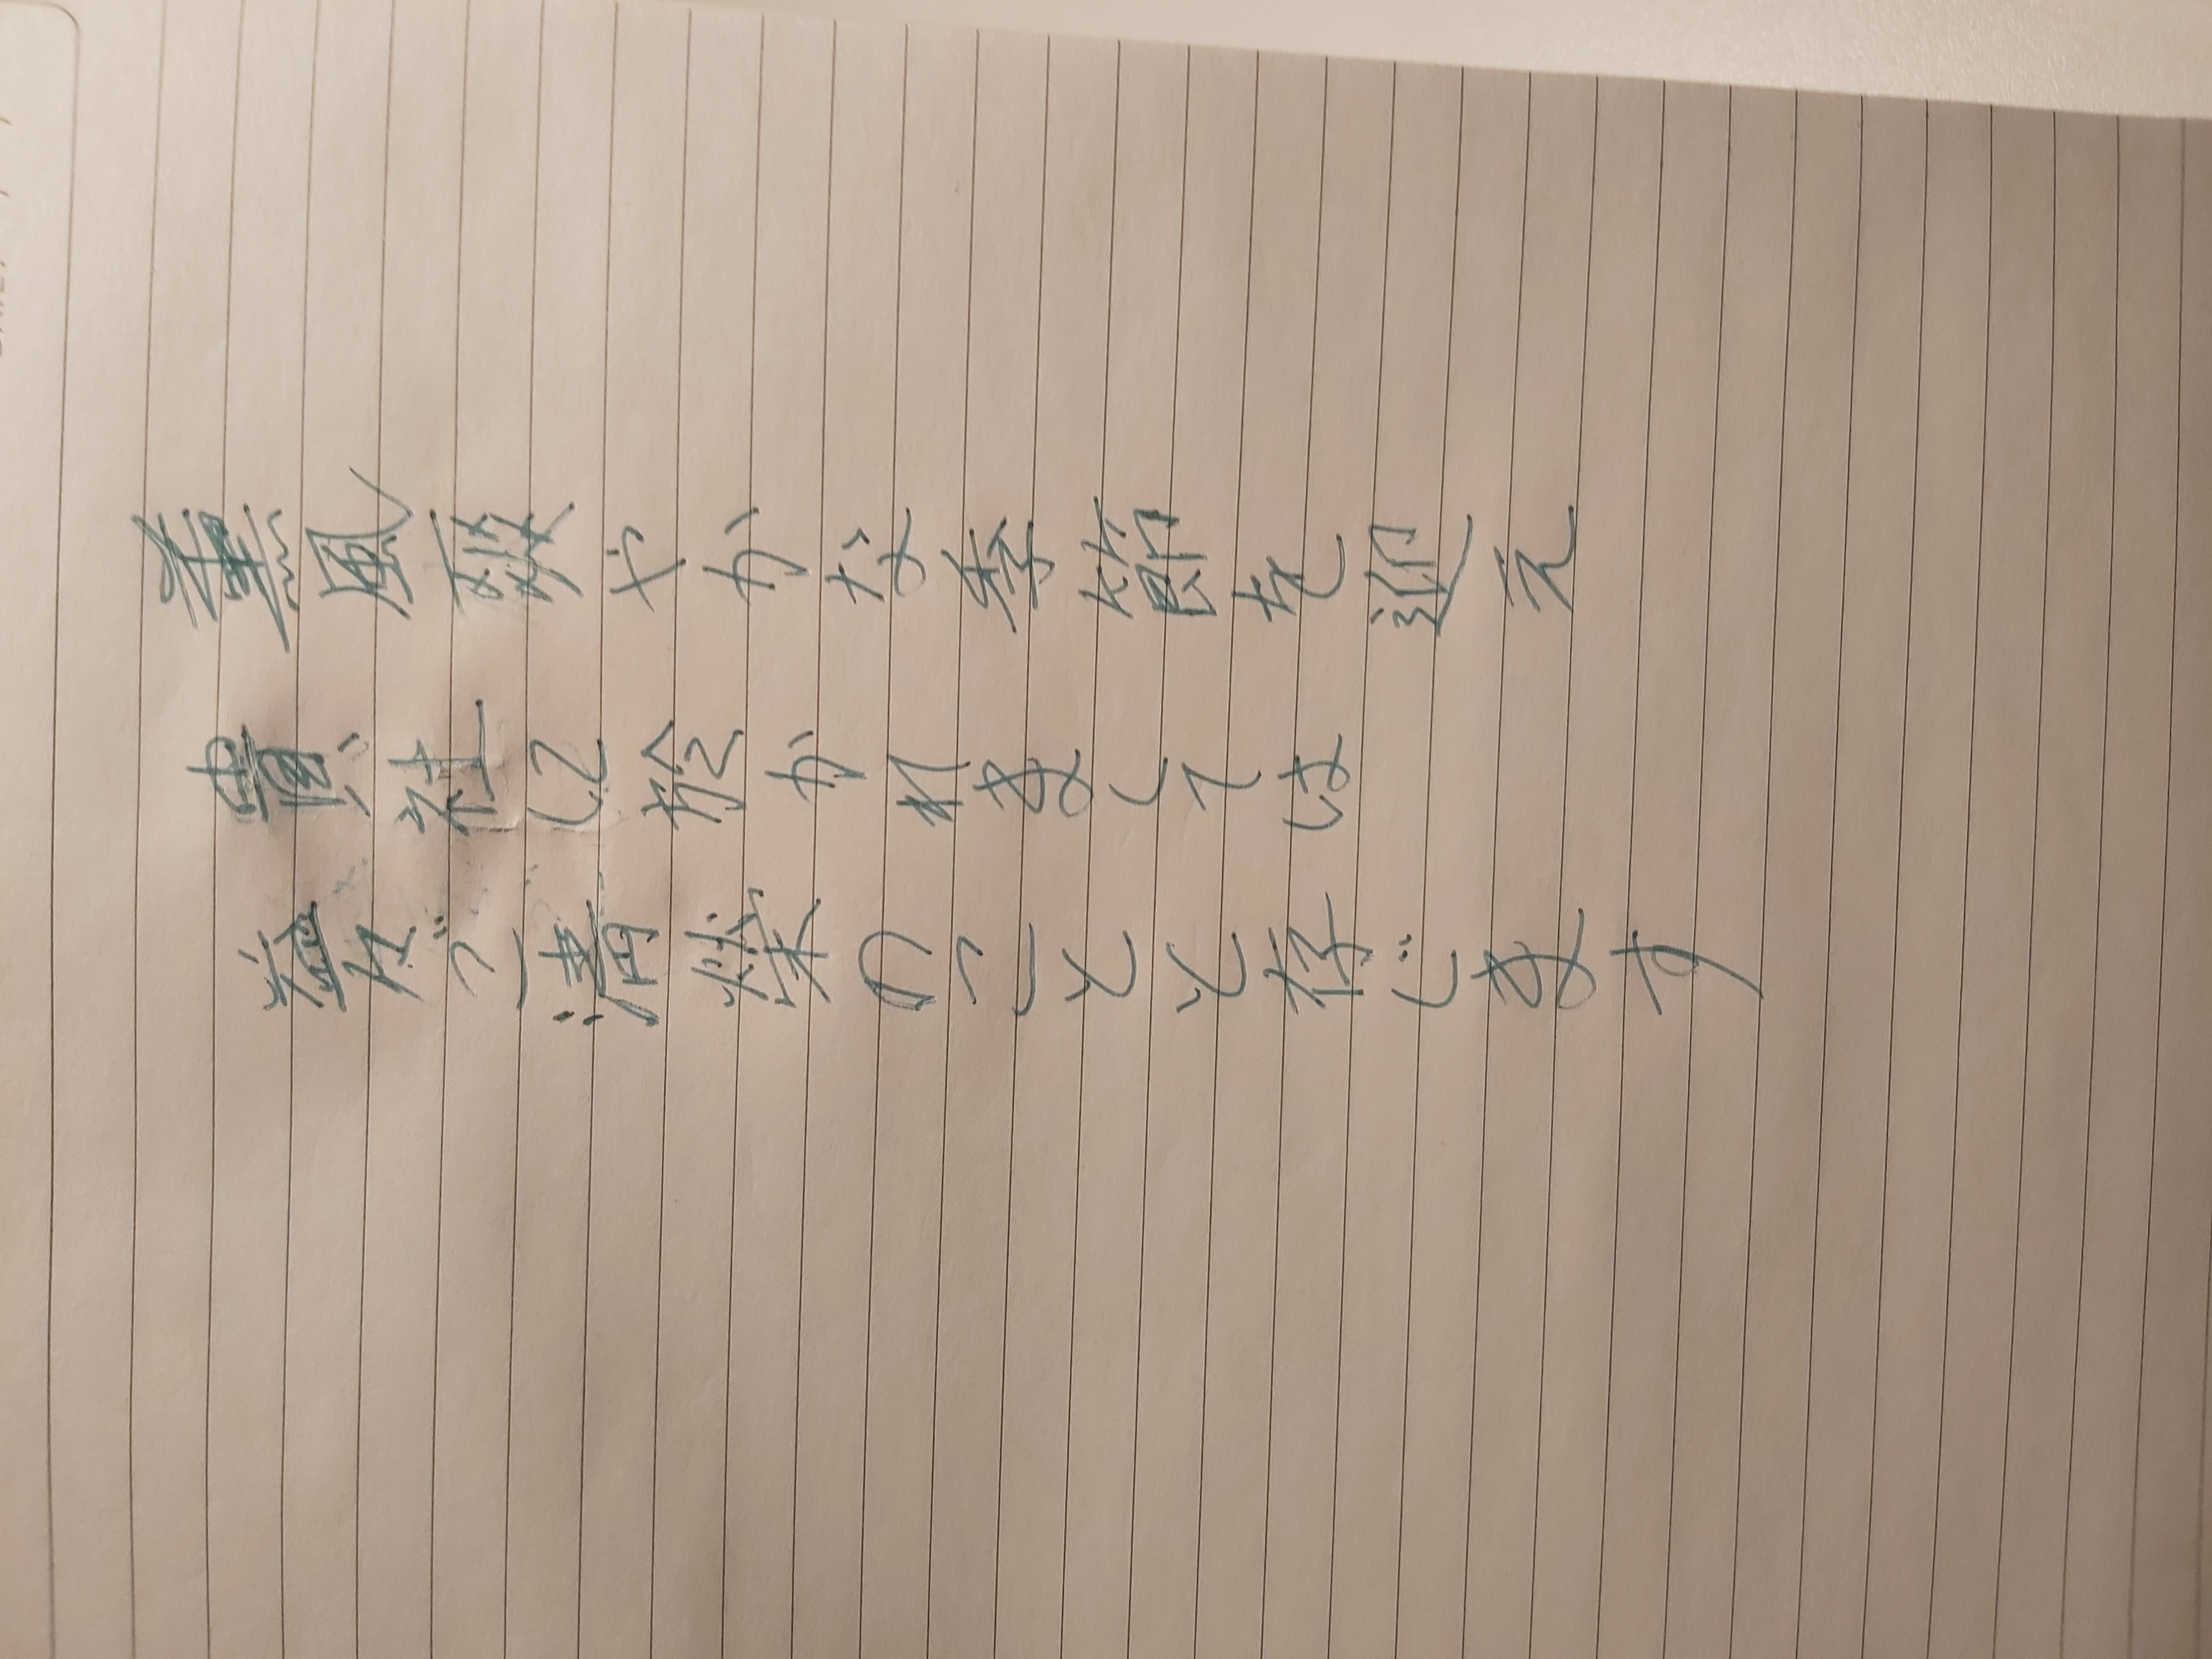 薫風爽やかな季節を迎え
貴社に於かれましては
益々ご清栄のことと存じます